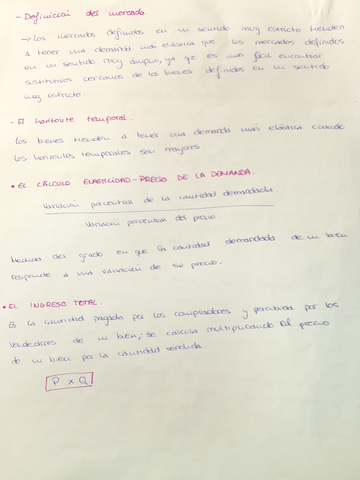 - Definición del mercado.
→ los mercados definidos en un sentido muy estricto tienden
a tener una demanda más elástica que los mercados definidos
en un sentido muy amplio, ya que es más fácil encontrar
sustitutivos cercanos de los bienes definidos en un sentido
muy estricto.
- El horizonte temporal.
Los bienes tienden a tener una demanda más elástica cuando
los horizontes temporales son mayores.
• EL CÁLCULO ELASTICIDAD-PRECIO DE LA DEMANDA.
Variación porcentual de la cantidad demandada
Variación porcentual del precio
Medida del grado en que la cantidad demandada de un bien
responde a una variación de su precio.
• EL INGRESO TOTAL.
Es la cantidad pagada por los compradores y percibida por los
vendedores de un bien; se calcula multiplicando el precio
de un bien por la cantidad vendida.
P x Q